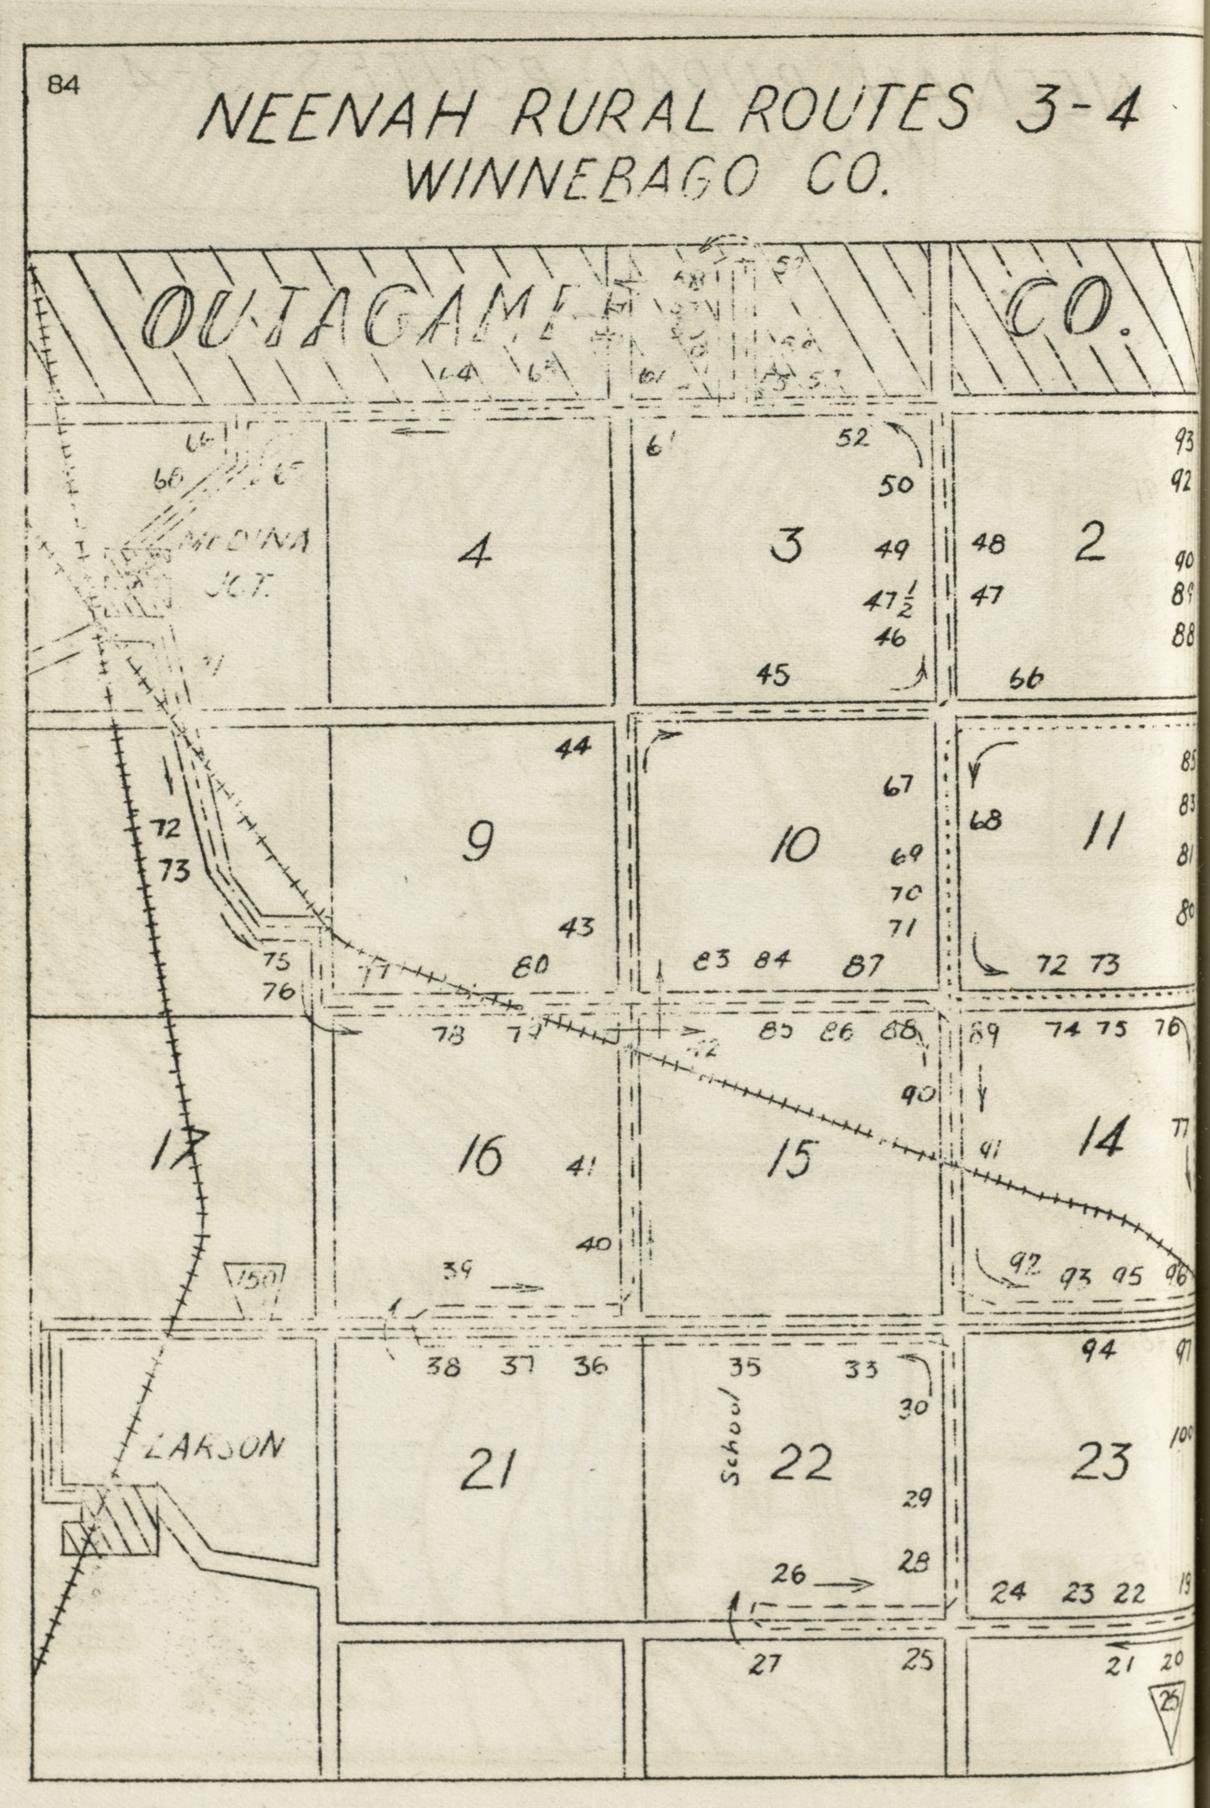 84
NEENAH RURAL ROUTES 3-4
WINNEBAGO CO.
OUTAGAMIE CO.
64
61
61 52 93
66 50 92
68 65
MEDINA 4 3 49 48 2 90
JCT. 47½ 47 89
46 88
45 66
44 85
67 83
72 68
73 9 10 11 81
69
70 80
43 71
75 77 80 83 84 87 72 73
76
78 79 42 85 86 88 89 74 75 76
90
17 16 41 15 91 14 77
40
150 39 92 93 95 96
38 37 36 35 33 94 97
30 100
LARSON 21 School 22 23
29
26 28 24 23 22 19
27 25 21 20
25